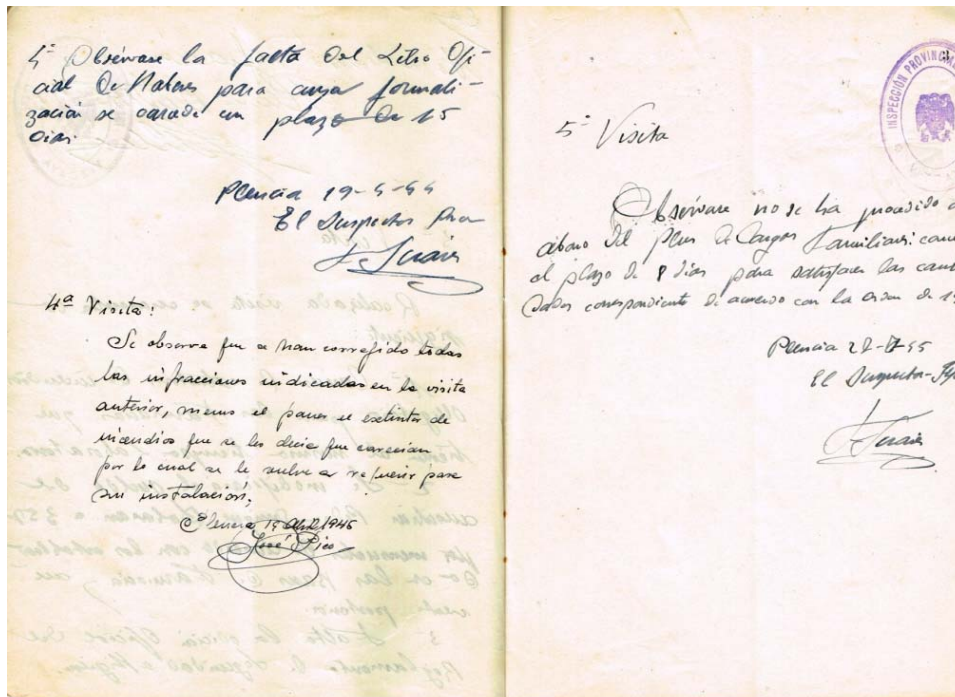 4º Obsérvase la falta del Libro Ofi-
cial de Haberes para cuya formali-
zación se concede un plazo de 15
días
Plencia 19-4-44
El Inspector
4ª Visita:
Se observa que se han corregido todas
las infracciones indicadas en la visita
anterior, menos el poner el extintor de
incendios que se les decía que carecían
por lo cual se le vuelve a requerir para
su instalación,
Plencia, 15 Abril 1945
José Pico
INSPECCIÓN PROVINCIAL
5ª Visita
Obsérvase no se ha procedido a
abono del Plus de Cargas Familiares
el plazo de 8 días para satisfacer las
correspondiente de acuerdo con la orden de
Plencia 27-
El Inspector